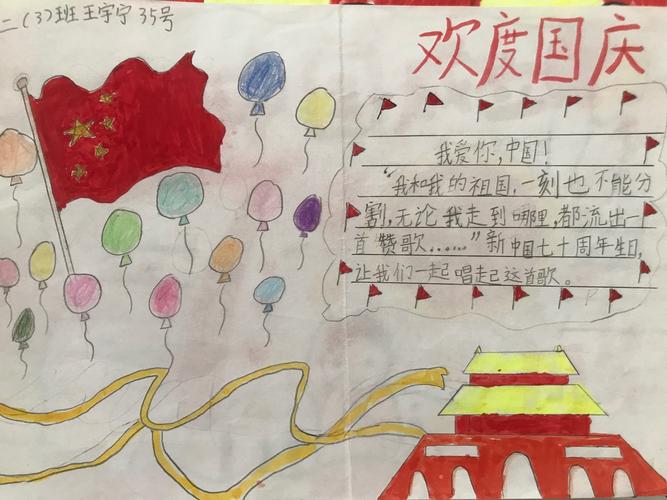 二(3)班王宇宁35号
欢度国庆
我爱你,中国!
“我和我的祖国,一刻也不能分
割,无论我走到哪里,都流出一
首赞歌……”新中国七十周年生日,
让我们一起唱起这首歌。